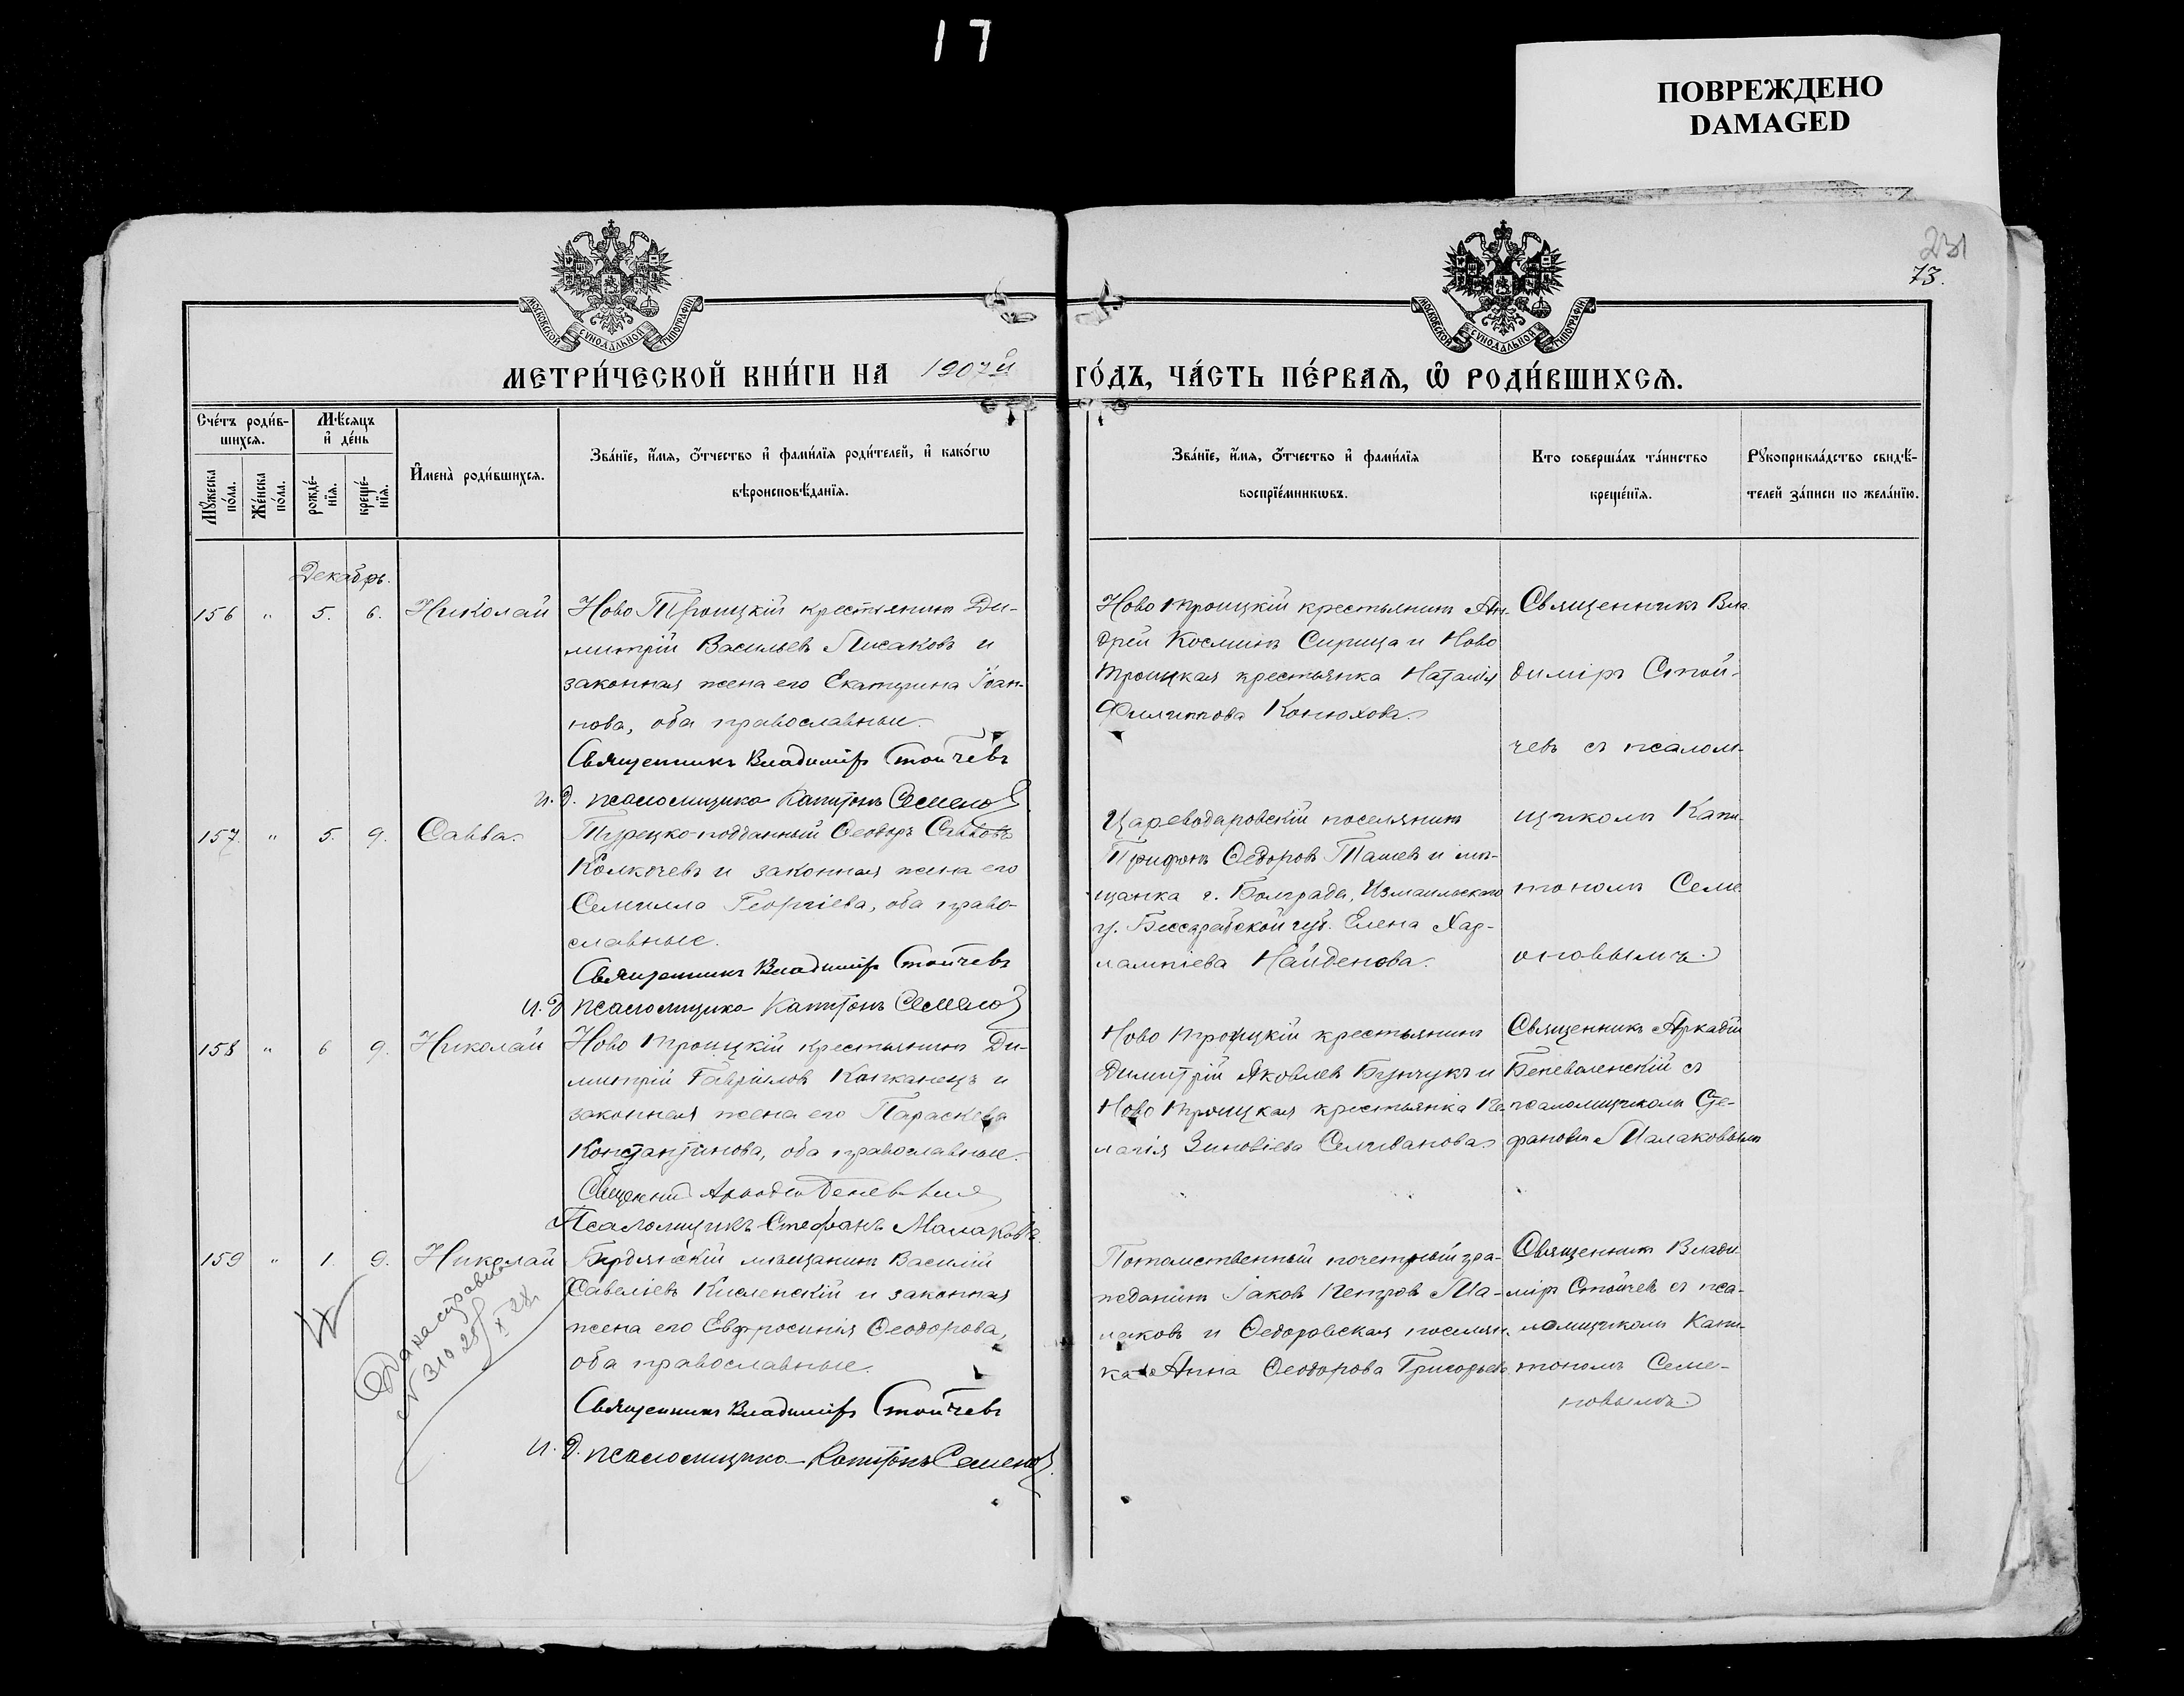 17
ПОВРЕЖДЕНО
DAMAGED
231
73.
МОСКОВСКОЙ СѴНОДАЛЬНОЙ ТИПОГРАФІИ
МОСКОВСКОЙ СѴНОДАЛЬНОЙ ТИПОГРАФІИ
МЕТРИ́ЧЕСКОЙ КНИ́ГИ НА 1907й ГО́ДЪ, ЧА́СТЬ ПЕ́РВАѦ, Ѽ РОДИ́ВШИХСѦ.
Сче́тъ роди́в-
шихсѧ.
Мꙋжеска по́ла.
Же́нска по́ла.
Мѣ́сѧцъ
и҆ де́нь
рожде́-
нїѧ.
креще́-
нїѧ.
И҆мена̀ роди́вшихсѧ.
Зва́нїе, и҆́мѧ, ѻ҆́тчество и҆ фами́лїѧ роди́телей, и҆ како́гѡ
вѣроисповѣ́данїѧ.
Зва́нїе, и҆́мѧ, ѻ҆́тчество и҆ фами́лїѧ
воспрїе́мникѡвъ.
Кто соверша́лъ та́инство
креще́нїѧ.
Рꙋкоприкла́дство свидѣ́-
телей за́писи по жела́нїю.
Декабрь.
156 " 5. 6. Николай
Ново Троицкій крестьянинъ Ди-
митрій Васильевъ Писаковъ и
законная жена его Екатерина Іоан-
нова, оба православные.
Священникъ Владиміръ Стойчевъ
и. д. псаломщика Капитонъ Семеновъ
Ново Троицкій крестьянинъ Ан-
дрей Косминъ Сирица и Ново
Троицкая крестьянка Наталія
Филиппова Конюхова.
Священникъ Вла
диміръ Стой-
чевъ съ псалом-
щикомъ Капи-
тономъ Семе
оновымъ.
157. " 5. 9. Савва.
Турецко-подданный Ѳеодоръ Саввовъ
Колкчевъ и законная жена его
Георгіева, оба право-
славные.
Священникъ Владиміръ Стойчевъ
и. д псаломщика Капитонъ Семеновъ
Цареводаровскій поселянинъ
Трифонъ Ѳедоровъ Ташевъ и мѣ-
щанка г. Болграда, Измаильскаго
у. Бессарабской губ. Елена Хар-
лампіева Найденова.
158 " 6 9. Николай
Ново Троицкій крестьянинъ Ди-
митрій Гавріиловъ Капканецъ и
законная жена его Параскева
Константинова, оба православные.
Псаломщикъ Стефанъ Малаковъ.
Ново Троицкій крестьянинъ
Димитрій Яковлевъ Бунчукъ и
Ново Троицкая крестьянка Пе-
лагія Зиновіева Селиванова.
Священникъ Аркадій
Беневоленскій съ
псаломщикомъ Сте-
фаномъ Малаковымъ
159 " 1. 9. Николай
Бердянскій мѣщанинъ Василій
Савеліевъ Кисленскій и законная
жена его Евфросинія Ѳеодорова,
оба православные.
Священникъ Владиміръ Стойчевъ
и. д. псаломщика Капитонъ Семеновъ.
Потомственный почетный гра-
жданинъ Іаковъ Петровъ Ма-
лаковъ и Ѳедоровская поселян-
ка Анна Ѳеодорова Григорьева
Священникъ Влади
міръ Стойчевъ съ пса-
ломщикомъ Капи-
тономъ Семе-
новымъ.
дана справка
N 310